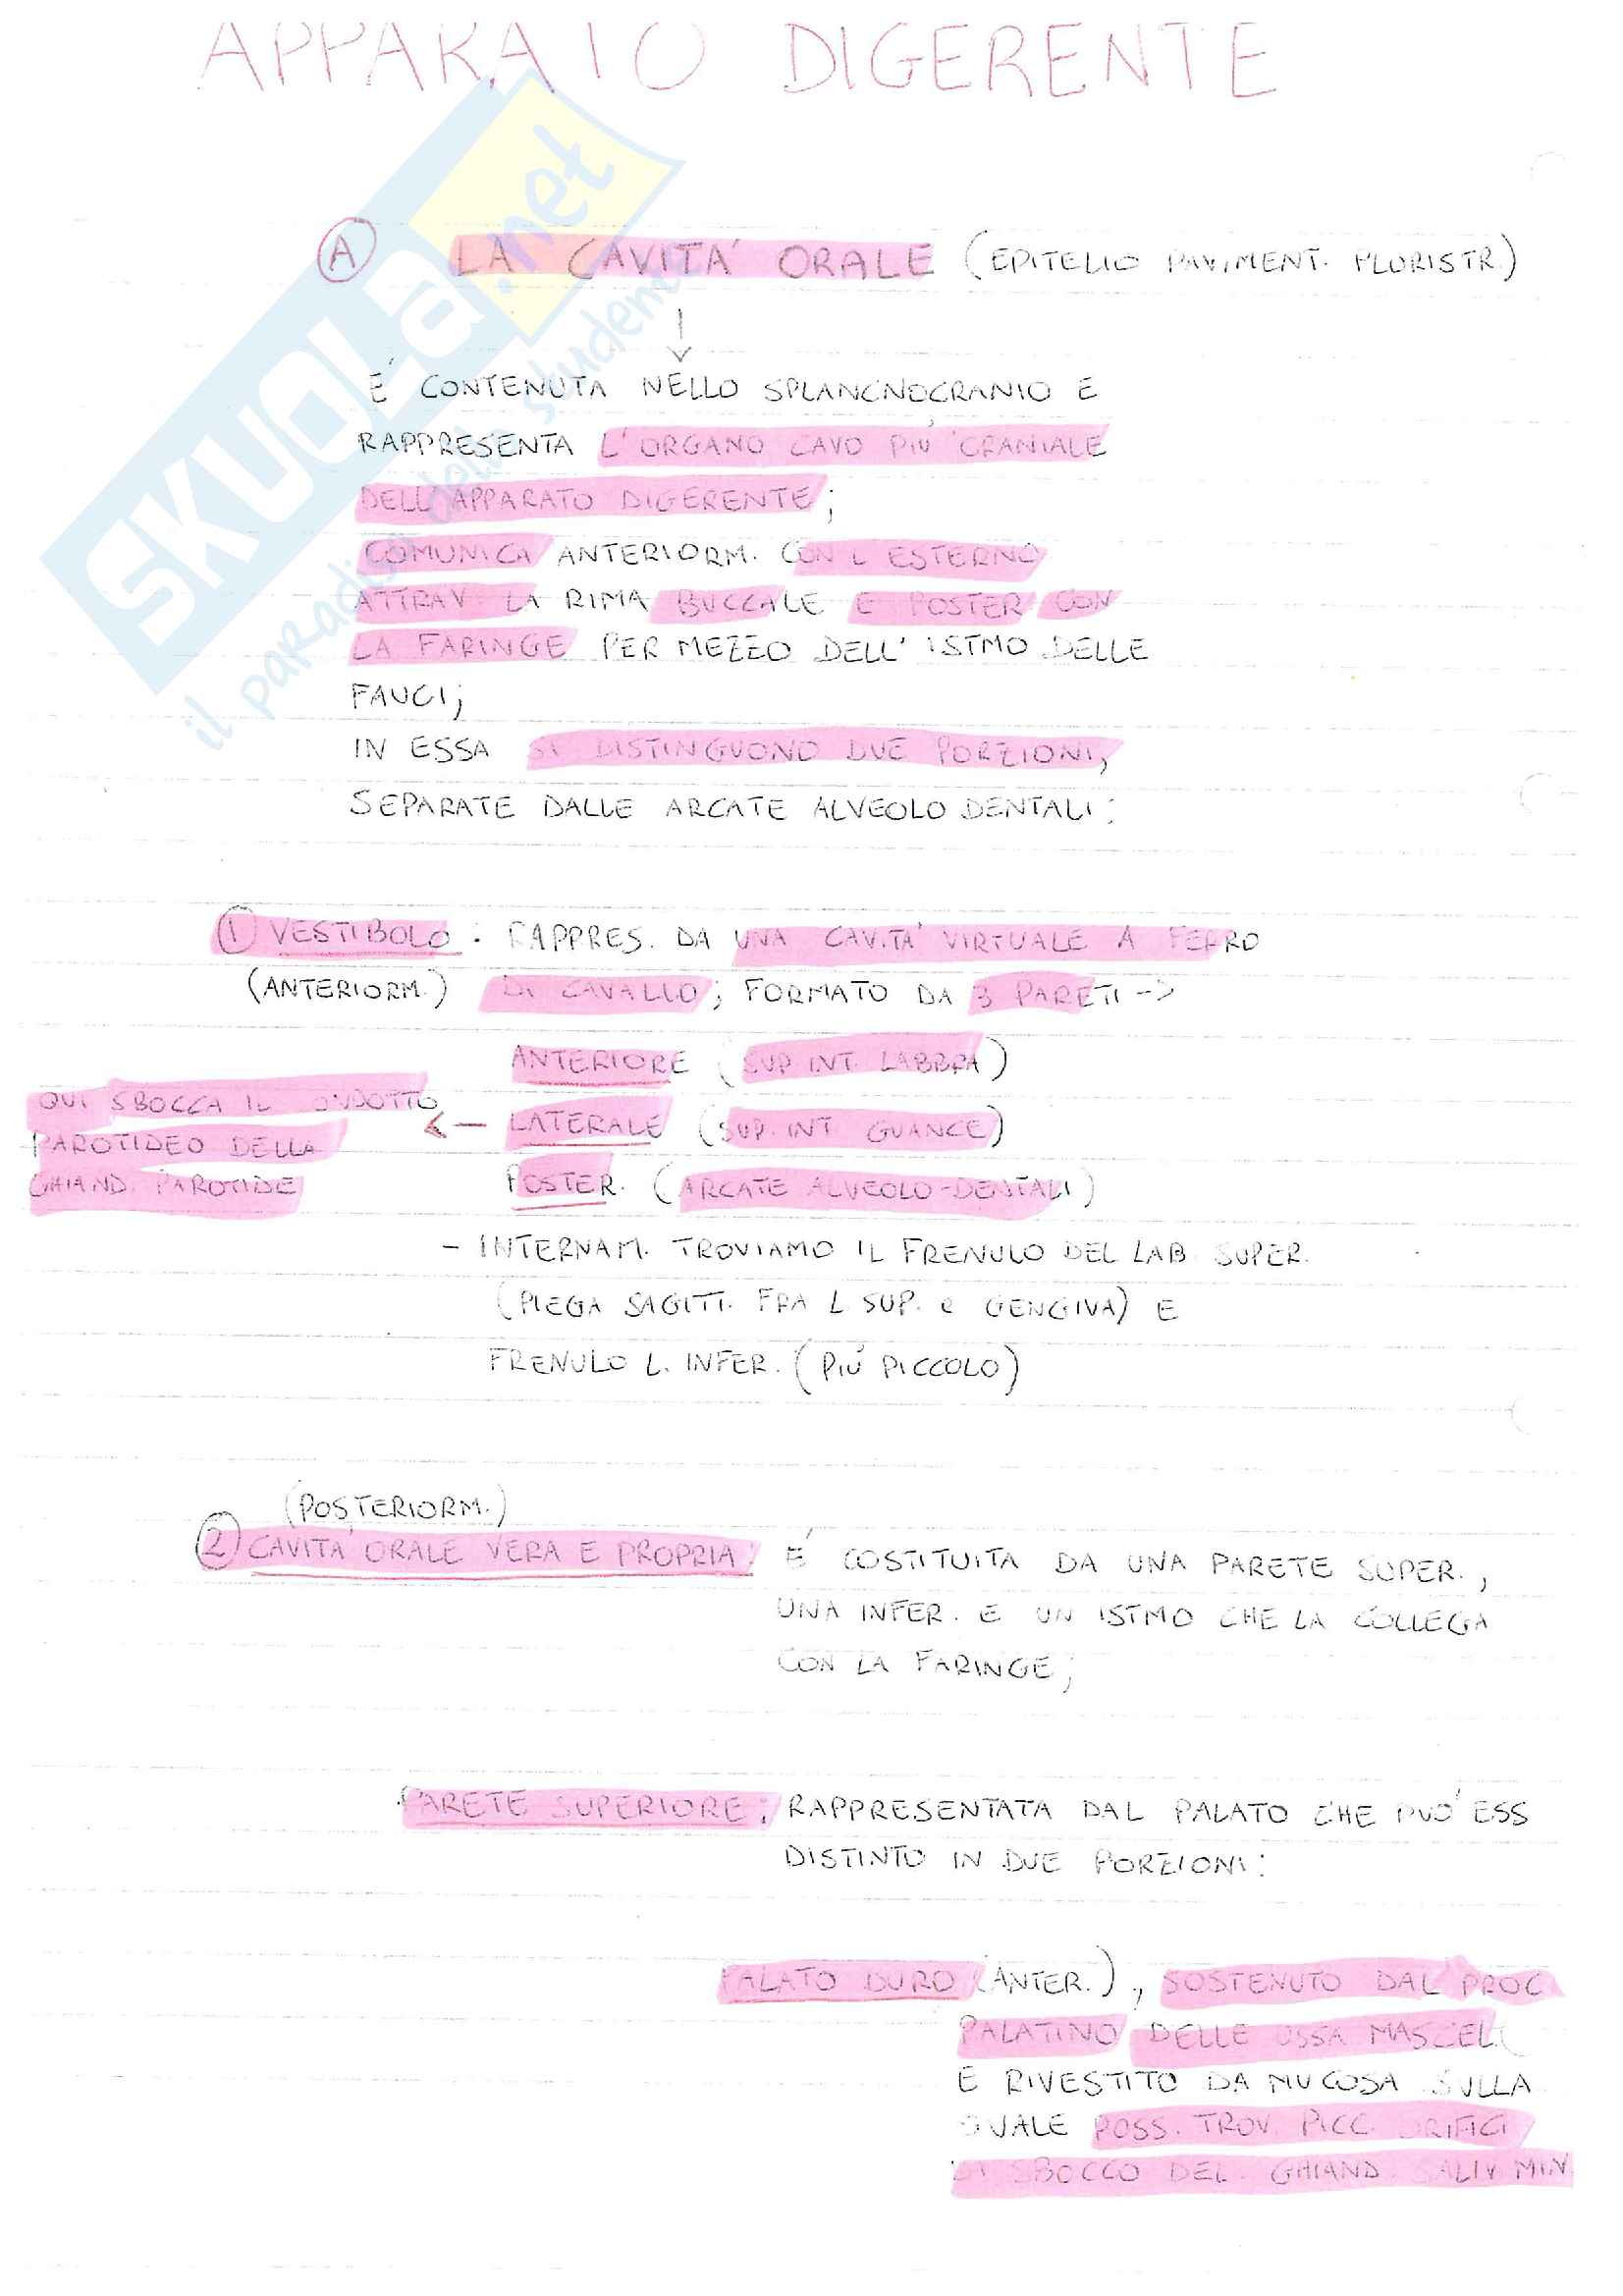 APPARATO DIGERENTE
A LA CAVITA' ORALE (EPITELIO PAVIMENT. PLURISTR.)
E' CONTENUTA NELLO SPLANCNOCRANIO E
RAPPRESENTA L'ORGANO CAVO PIU' CRANIALE
DELL'APPARATO DIGERENTE;
COMUNICA ANTERIORM. CON L'ESTERNO
ATTRAV. LA RIMA BUCCALE E POSTER CON
LA FARINGE PER MEZZO DELL'ISTMO DELLE
FAUCI;
IN ESSA SI DISTINGUONO DUE PORZIONI,
SEPARATE DALLE ARCATE ALVEOLO DENTALI:
1 VESTIBOLO: RAPPRES. DA UNA CAVITA' VIRTUALE A FERRO
(ANTERIORM.) DI CAVALLO; FORMATO DA 3 PARETI ->
ANTERIORE (SUP INT. LABBRA)
QUI SBOCCA IL CONDOTTO
PAROTIDEO DELLA
GHIAND. PAROTIDE
<- LATERALE (SUP. INT GUANCE)
POSTER. (ARCATE ALVEOLO-DENTALI)
- INTERNAM. TROVIAMO IL FRENULO DEL LAB. SUPER.
(PIEGA SAGITT. FRA L SUP. e GENGIVA) E
FRENULO L. INFER. (PIU' PICCOLO)
(POSTERIORM.)
2 CAVITA' ORALE VERA E PROPRIA: E' COSTITUITA DA UNA PARETE SUPER.,
UNA INFER. E UN ISTMO CHE LA COLLEGA
CON LA FARINGE;
PARETE SUPERIORE: RAPPRESENTATA DAL PALATO CHE PUO' ESS
DISTINTO IN DUE PORZIONI:
PALATO DURO (ANTER.), SOSTENUTO DAL PROC
PALATINO DELLE OSSA MASCEL.
E RIVESTITO DA MUCOSA SULLA
QUALE POSS. TROV. PICC. ORIFICI
DI SBOCCO DEL. GHIAND. SALIV MIN.
SKUOLA.net
il paradiso dello studente